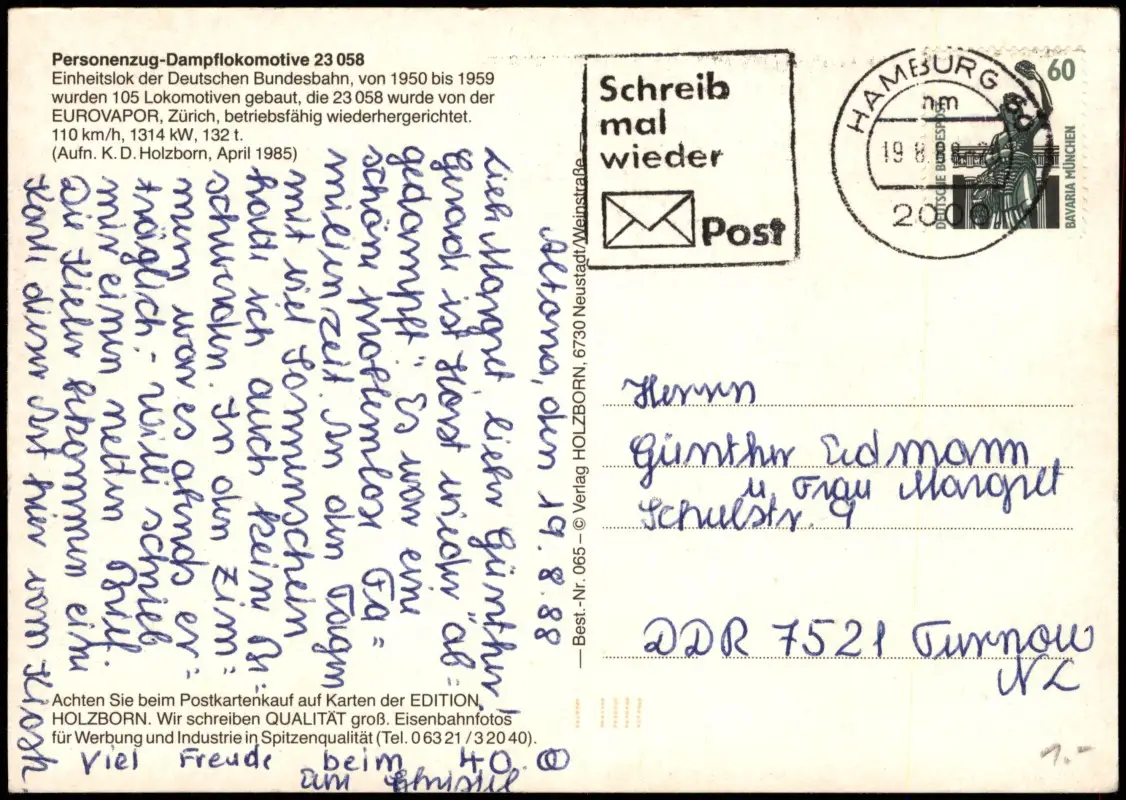 Personenzug-Dampflokomotive 23 058
Einheitslok der Deutschen Bundesbahn, von 1950 bis 1959
wurden 105 Lokomotiven gebaut, die 23 058 wurde von der
EUROVAPOR, Zürich, betriebsfähig wiederhergerichtet.
110 km/h, 1314 kW, 132 t.
(Aufn. K. D. Holzborn, April 1985)
Altona, den 19.8.88
Lieb Margret, lieber Günther!
Gerade ist Horst wieder "ab=
gedampft". Es war eine
schöne problemlose Fa=
milienzeit. An den Tagen
mit viel Sonnenschein
habe ich auch keine Be=
schwerden. In den Zim=
mern war es abends er=
träglich. - Willi schrieb
mir einen netten Brief.
Die Kieler bekommen eine
Karte dieser Art hier vom Kiosk.
Viel Freude beim 40.
Achten Sie beim Postkartenkauf auf Karten der EDITION
HOLZBORN. Wir schreiben QUALITÄT groß. Eisenbahnfotos
für Werbung und Industrie in Spitzenqualität (Tel. 0 63 21 / 3 20 40).
— Best.-Nr. 065 – © Verlag HOLZBORN, 6730 Neustadt/Weinstraße —
Schreib
mal
wieder
Post
HAMBURG
nm
19.8.88
2000
60
DEUTSCHE BUNDESPOST
BAVARIA MÜNCHEN
Herrn
Günther Erdmann
u. Frau Margret
Schulstr. 9
DDR 7521 Turnow
NL
1.-